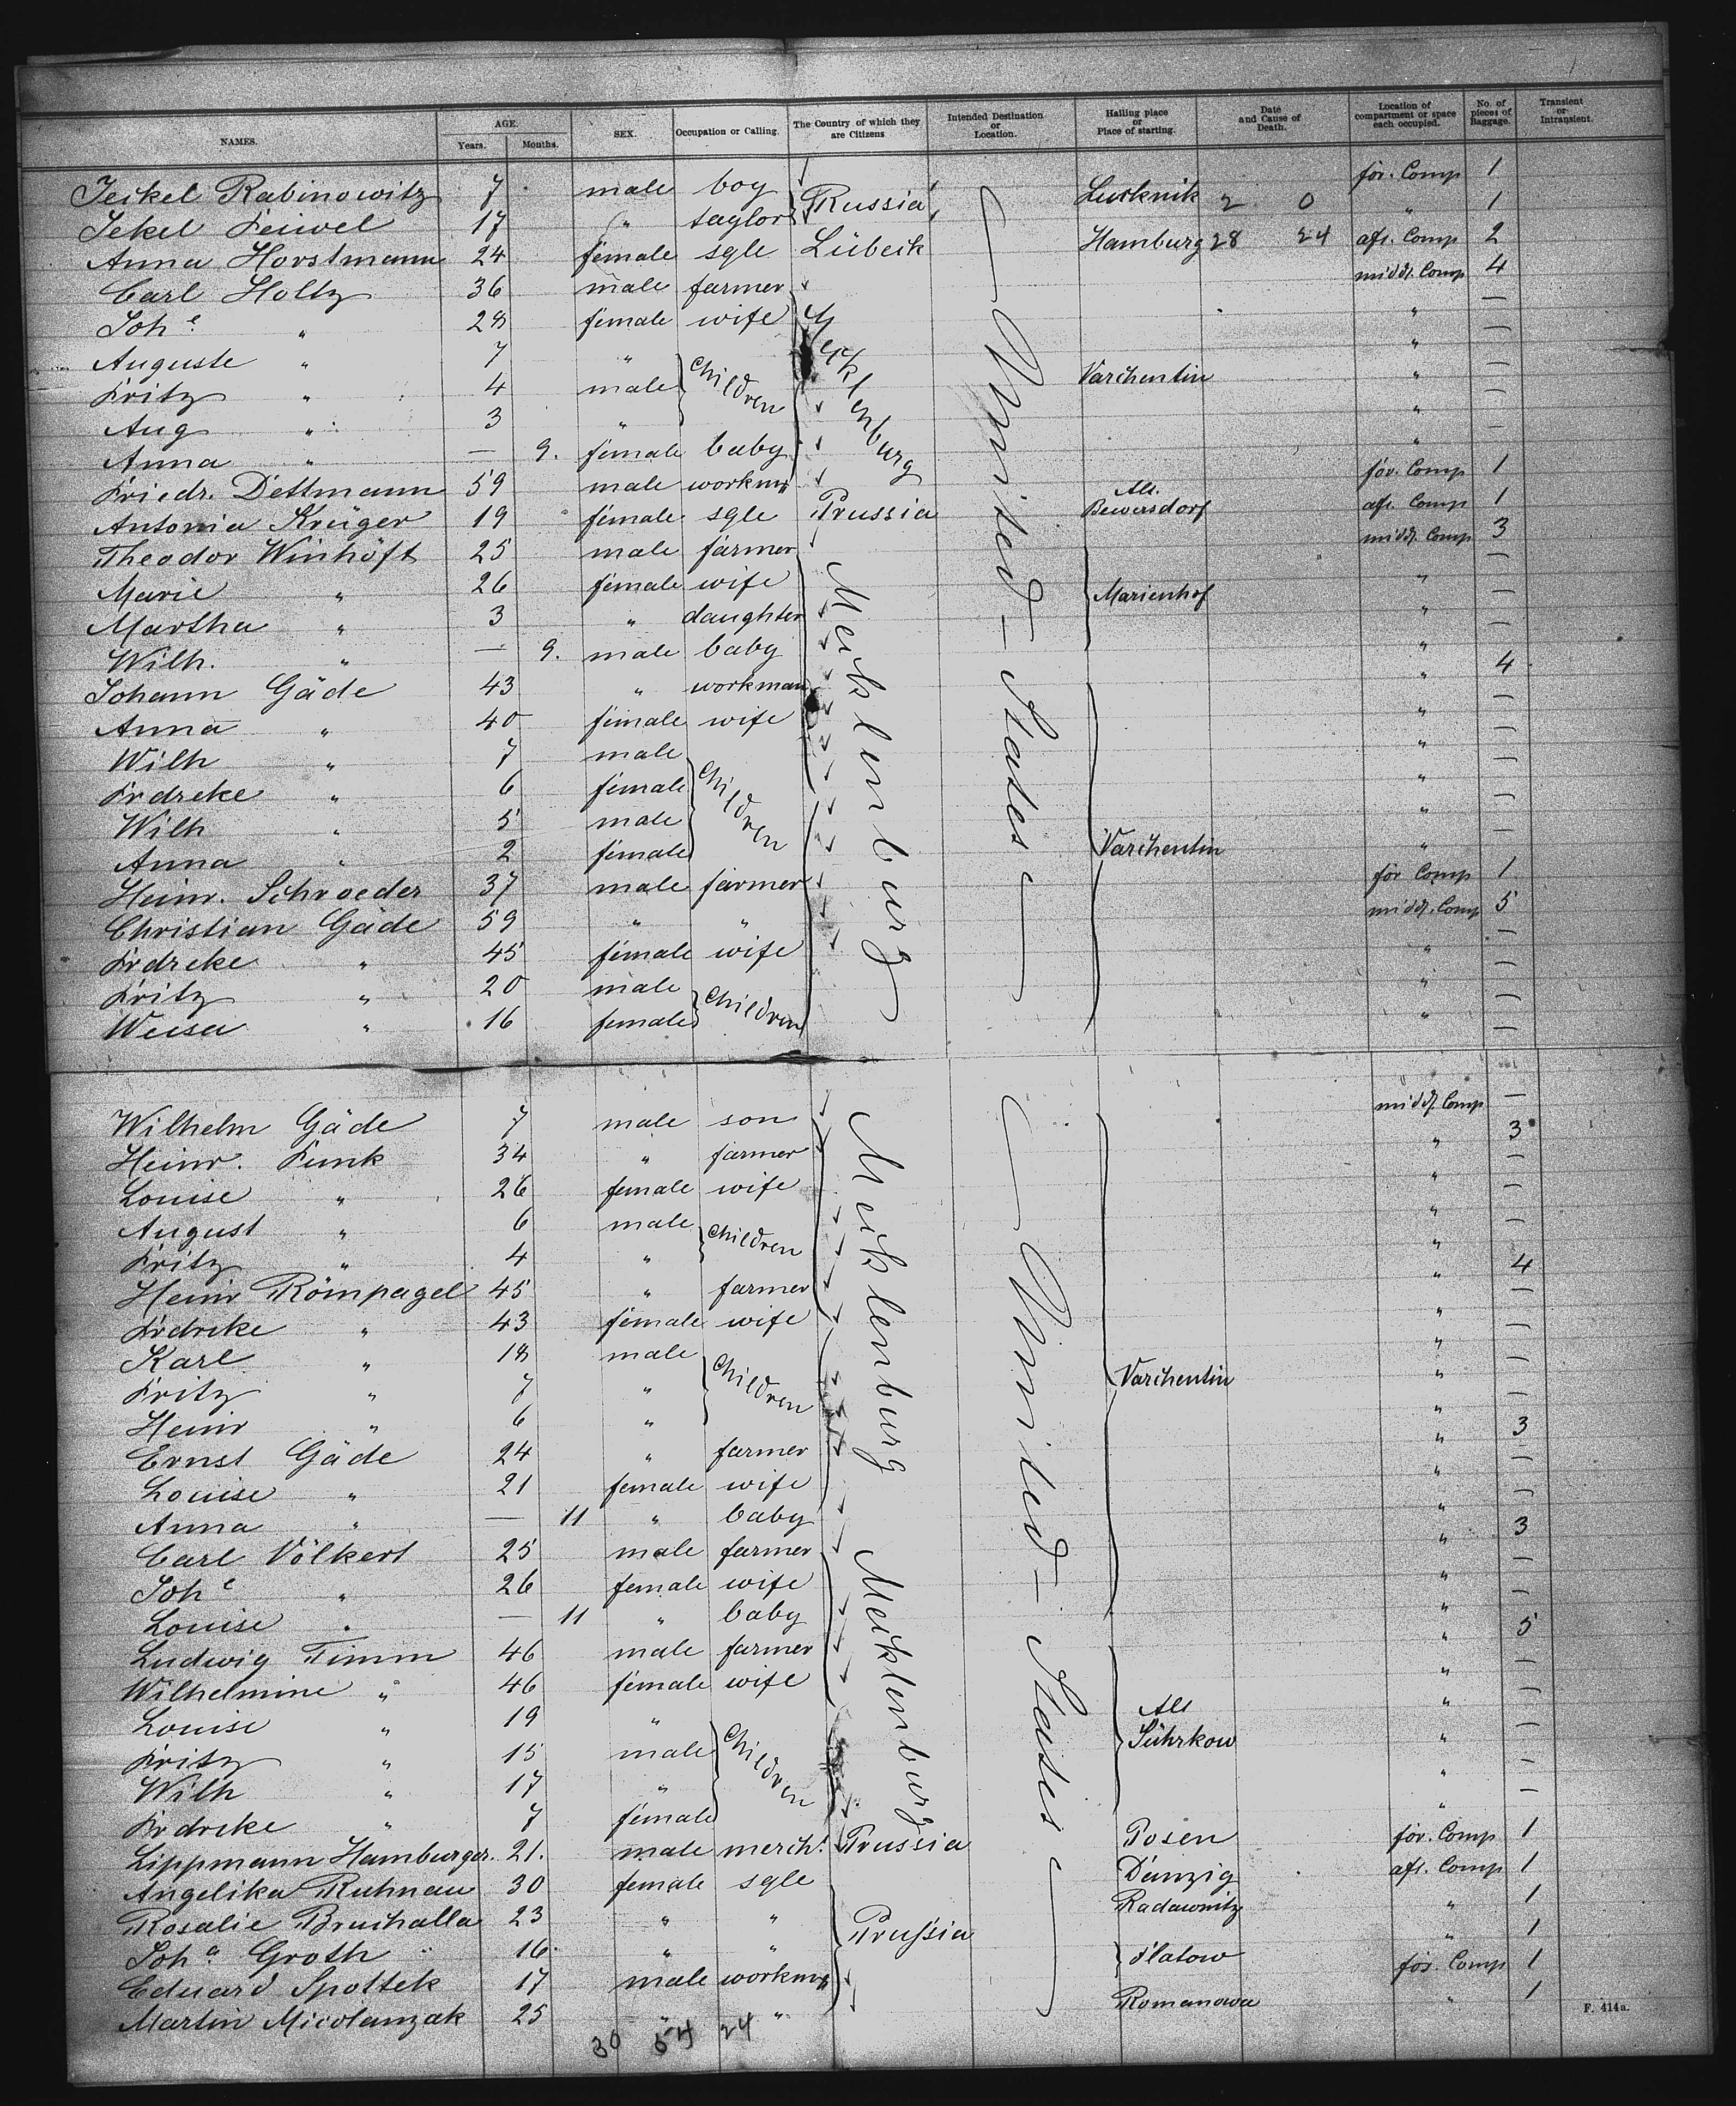 NAMES. AGE. Years. Months. SEX. Occupation or Calling. The Country of which they are Citizens Intended Destination or Location. Hailing place or Place of starting. Date and Cause of Death. Location of compartment or space each occupied. No. of pieces of Baggage. Transient or Intransient.
Jeikel Rabinowitz 7 male boy for. Comp 1
Jekel Leiwel 17 " taylor Russia 2 0 " 1
Anna Horstmann 24 female sgle Lübeck Hamburg 28 24 aft. Comp 2
Carl Holtz 36 male farmer midd. Comp 4
Joh.e " 28 female wife " —
Auguste " 7 " " —
Fritz " 4 male Children Mecklenburg Varchentin " —
Aug " 3 " " —
Anna " — 9. female baby " —
Friedr. Dettmann 59 male workmn for. Comp 1
Antonia Krüger 19 female sgle Prussia Alt. Bewersdorf aft. Comp 1
Theodor Winhöft 25 male farmer midd. Comp 3
Marie " 26 female wife Marienhof " —
Martha " 3 " daughter " —
Wilh. " — 9. male baby " —
Johann Gäde 43 " workman " 4
Anna " 40 female wife " —
Wilh " 7 male " —
Frdreke " 6 female Children Mecklenburg United States " —
Wilh " 5 male " —
Anna " 2 female Varchentin " —
Heinr. Schroeder 37 male farmer for Comp 1
Christian Gäde 59 " " midd. Comp 5
Frdreke " 45 female wife " —
Fritz " 20 male Children " —
Weisa " 16 female " —
Wilhelm Gäde 7 male son midd. Comp —
Heinr. Funk 34 " farmer " 3
Louise " 26 female wife " —
August " 6 male Children " —
Fritz " 4 " " —
Heinr Römpagel 45 " farmer " 4
Frdreke " 43 female wife Mecklenburg " —
Karl " 18 male " —
Fritz " 7 " Children Varchentin " —
Heinr " 6 " " —
Ernst Gäde 24 " farmer " 3
Louise " 21 female wife " —
Anna " — 11 " baby " —
Carl Völkert 25 male farmer " 3
Joh.e " 26 female wife United States " —
Louise " — 11 " baby " —
Ludwig Timm 46 male farmer " 5
Wilhelmine " 46 female wife Mecklenburg " —
Louise " 19 " Alt Sührkow " —
Fritz " 15 male Children " —
Wilh " 17 " " —
Frdreke " 7 female " —
Lippmann Hamburger. 21. male mercht. Prussia Posen for. Comp 1
Angelika Ruhnau 30 female sgle Danzig aft. Comp 1
Rosalie Bruchalla 23 " " Radawnitz " 1
Joh.a Groth 16. " " Prussia Flatow " 1
Eduard Spottek 17 male workmn for. Comp 1
Martin Micolanzak 25 " " Romanowa " 1
30 54 24
F. 414a.